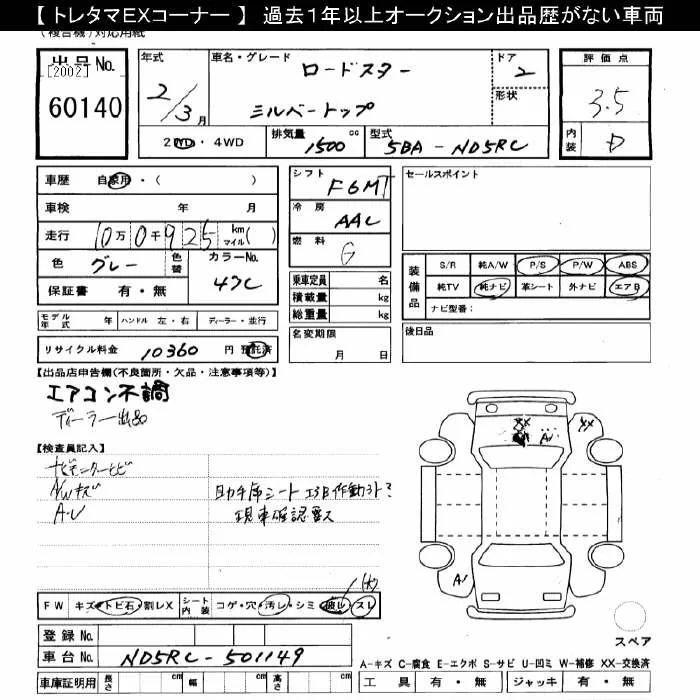 【 トレタマＥＸコーナー 】 過去１年以上オークション出品歴がない車両
(複合機)対応用紙
出品号 No.
[2002]
60140
年式
2/3月
車名・グレード
ロードスター
シルバートップ
ドア
2
形状
2WD・4WD
排気量 1500 cc
型式 5BA-ND5RC
評価点
3.5
内装 D
車歴 自家用・( )
車検 年 月
走行 10万0千925 km マイル( )
色 グレー 色替 カラーNo. 47C
保証書 有・無
シフト F6MT
冷房 AAC
燃料 G
乗車定員 名
積載量 kg
総重量 kg
名変期限
月 日
セールスポイント
装備品
S/R 純A/W P/S P/W ABS
純TV 純ナビ 革シート 外ナビ エアB
ナビ型番：
後日品
モデル年式 年 ハンドル 左・右 ディーラー・並行
リサイクル料金 10360 円 預託済
【出品店申告欄(不良箇所・欠品・注意事項等)】
エアコン不調
ディーラー出品
【検査員記入】
A/Wキズ
A・U
助手席シート
現車確認要ス
FW キズ・トビ石・割レX シート内装 コゲ・穴・汚レ・シミ 破レ・スレ
(大)
XX
XX
A1
A1
スペア
登録 No.
車台 No. ND5RC-501149
A-キズ C-腐食 E-エクボ S-サビ U-凹ミ W-補修 XX-交換済
車庫証明用 長さ cm 幅 cm 高さ cm
工具 有・無 ジャッキ 有・無